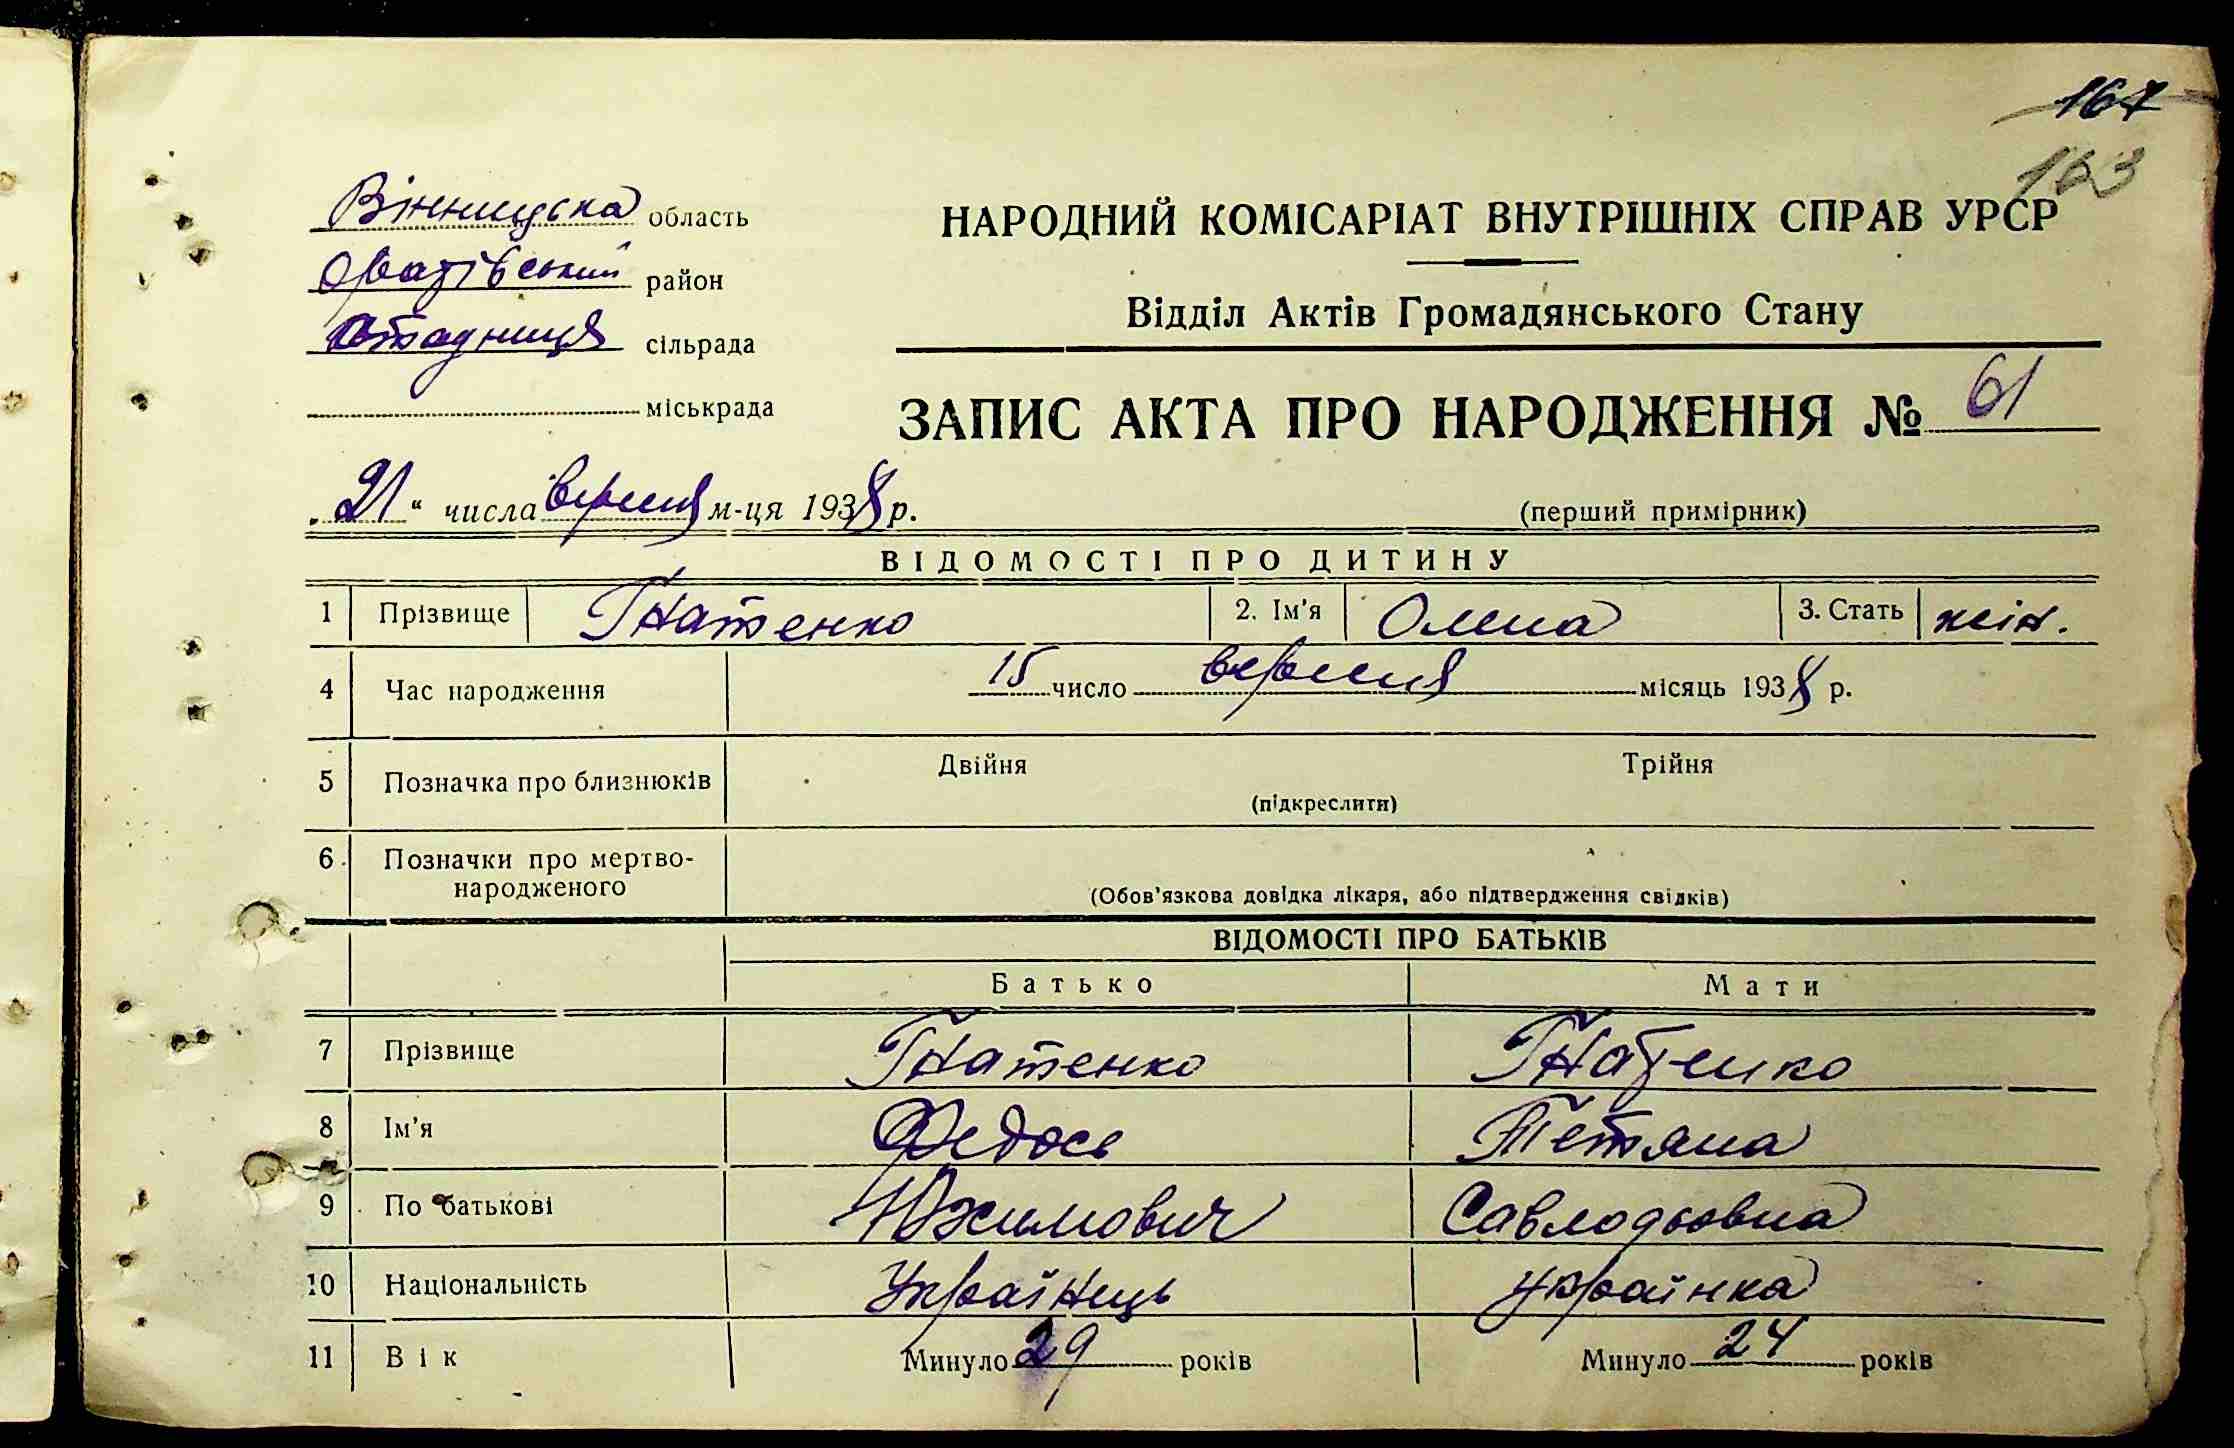 167
163
Вінницька область
Оратівський район
сільрада
міськрада
НАРОДНИЙ КОМІСАРІАТ ВНУТРІШНІХ СПРАВ УРСР
Відділ Актів Громадянського Стану
ЗАПИС АКТА ПРО НАРОДЖЕННЯ № 61
„21“ числа вересня м-ця 1938 р.
(перший примірник)
ВІДОМОСТІ ПРО ДИТИНУ
1 Прізвище Гнатенко 2. Ім'я Олена 3. Стать жін.
4 Час народження 15 число вересня місяць 1938 р.
5 Позначка про близнюків Двійня Трійня
(підкреслити)
6 Позначки про мертво-
народженого
(Обов'язкова довідка лікаря, або підтвердження свідків)
ВІДОМОСТІ ПРО БАТЬКІВ
Батько Мати
7 Прізвище Гнатенко Гнатенко
8 Ім'я Федось Тетяна
9 По батькові Юхимович
10 Національність Українець українка
11 Вік Минуло 29 років Минуло 24 років